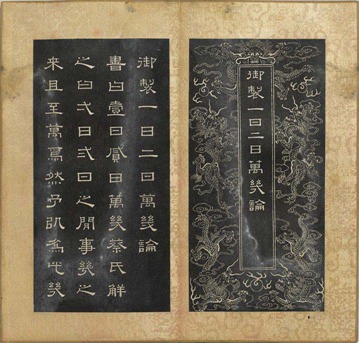 御製一日二日萬幾論
御製一日二日萬幾論
書曰壹日貳日萬幾蔡氏解
之曰弌日弍日之閒事幾之
來且至萬焉然予以為此幾